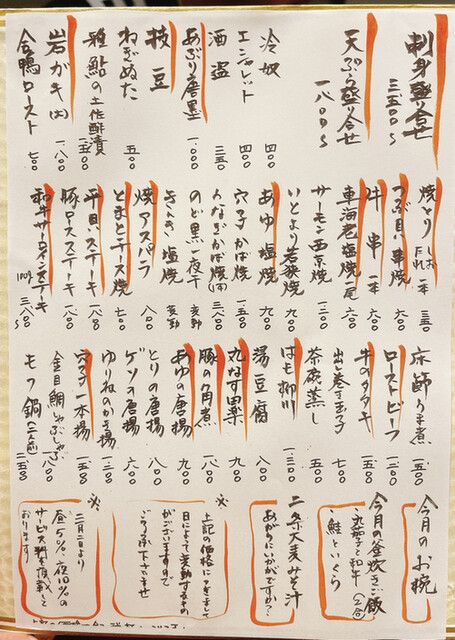 刺身盛り合せ 三五〇〇〜
天ぷら盛り合せ 一八〇〇〜
冷奴 四〇〇
エシャレット 四〇〇
酒盗 三五〇
あぶり唐墨 一、〇〇〇
枝豆
ねぎぬた 五〇〇
稚鮎の土佐酢漬 一、五〇〇
岩ガキ(大) 一、八〇〇
合鴨ロースト
焼とり しお たれ 一本 三五〇
つぶ貝串焼 六〇〇
牛串 一本
車海老塩焼 一尾
サーモン西京焼
いとより若狭焼 九〇〇
あゆ塩焼 九〇〇
穴子かば焼 一、五〇〇
うなぎかば焼
のど黒一夜干 変動
きんき塩焼 変動
焼アスパラ 八〇〇
とまとチーズ焼
平貝いステーキ
豚ロースステーキ 一八〇〇
和牛サーロインステーキ 100g 三八〇〇〜
ローストビーフ
牛のタタキ 一、五〇〇
出し巻き玉子 七〇〇
茶碗蒸し
はも柳川
湯豆腐 八〇〇
丸なす田楽 九〇〇
豚の角煮 一八〇〇
あゆの唐揚 九〇〇
とりの唐揚 八〇〇
ゲソの唐揚 六〇〇
ゆりねのかき揚
穴子一本揚 一、五〇〇
金目鯛しゃぶしゃぶ 一八〇〇
もつ鍋(一人前)
今月のお椀
今月の釜炊きご飯
・丸茄子と和牛 (2合)
・鮭といくら
二条大麦みそ汁
あがりにいかがですか?
※
上記の価格につきまして
日によって変動するもの
がございますので
ご了承下さいませ
※
二月二日より
昼5%、夜10%の
サービス料を頂戴して
おります